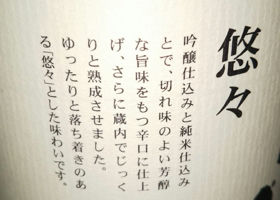 悠々
吟醸仕込みと純米仕込み
とで、切れ味のよい芳醇
な旨味をもつ辛口に仕上
げ、さらに蔵内でじっく
りと熟成させました。
ゆったりと落ち着きのあ
る「悠々」とした味わいです。